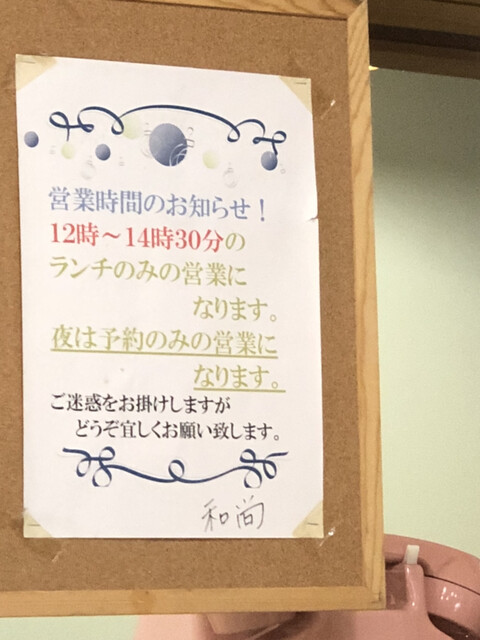 営業時間のお知らせ！
12時～14時30分の
ランチのみの営業に
なります。
夜は予約のみの営業に
なります。
ご迷惑をお掛けしますが
どうぞ宜しくお願い致します。
和尚